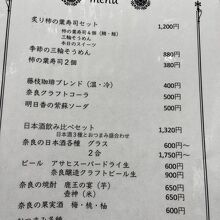 menu
炙り柿の葉寿司セット 1,200円
柿の葉寿司4個(鯖・鮭)
三輪そうめん
本日のスイーツ
季節の三輪そうめん 880円
柿の葉寿司2個 380円
藤枝珈琲ブレンド(温・冷) 400円
奈良クラフトコーラ 500円
明日香の紫蘇ソーダ 500円
日本酒飲み比べセット 1,320円
日本酒3種とおつまみ盛合わせ
奈良の日本酒各種 グラス 600円〜
2合 1,750円〜
ビール アサヒスーパードライ生 600円
奈良醸造クラフトビール生 900円
奈良の焼酎 鹿王の宴(芋) 650円
壺神(米) 650円
奈良の果実酒 梅・桃・柚 600円